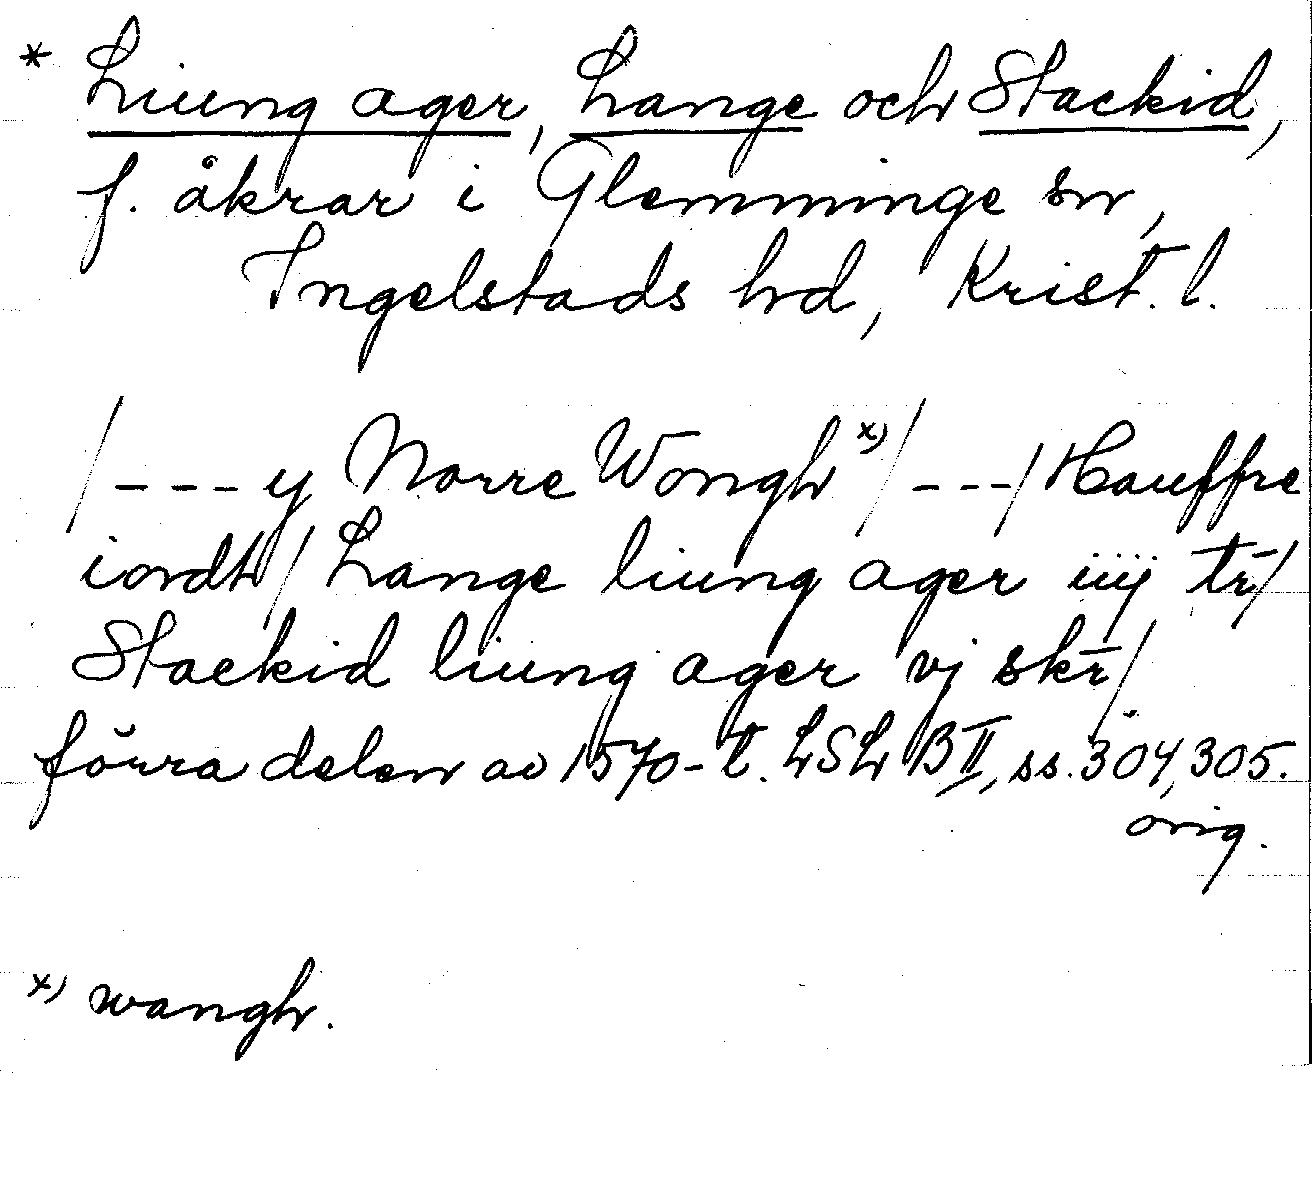 * Liung ager, Lange och Stackid,
f. åkrar i Glemminge sn,
Ingelstads hd, Krist. l.
/---y Norre Wongh x)/---/ Hauffre
iordt/ Lange liung ager iiij tr/
Stackid liung ager vj skr/
förra delen av 1570-t. LSL B II, ss. 304, 305.
orig.
x) wangh.